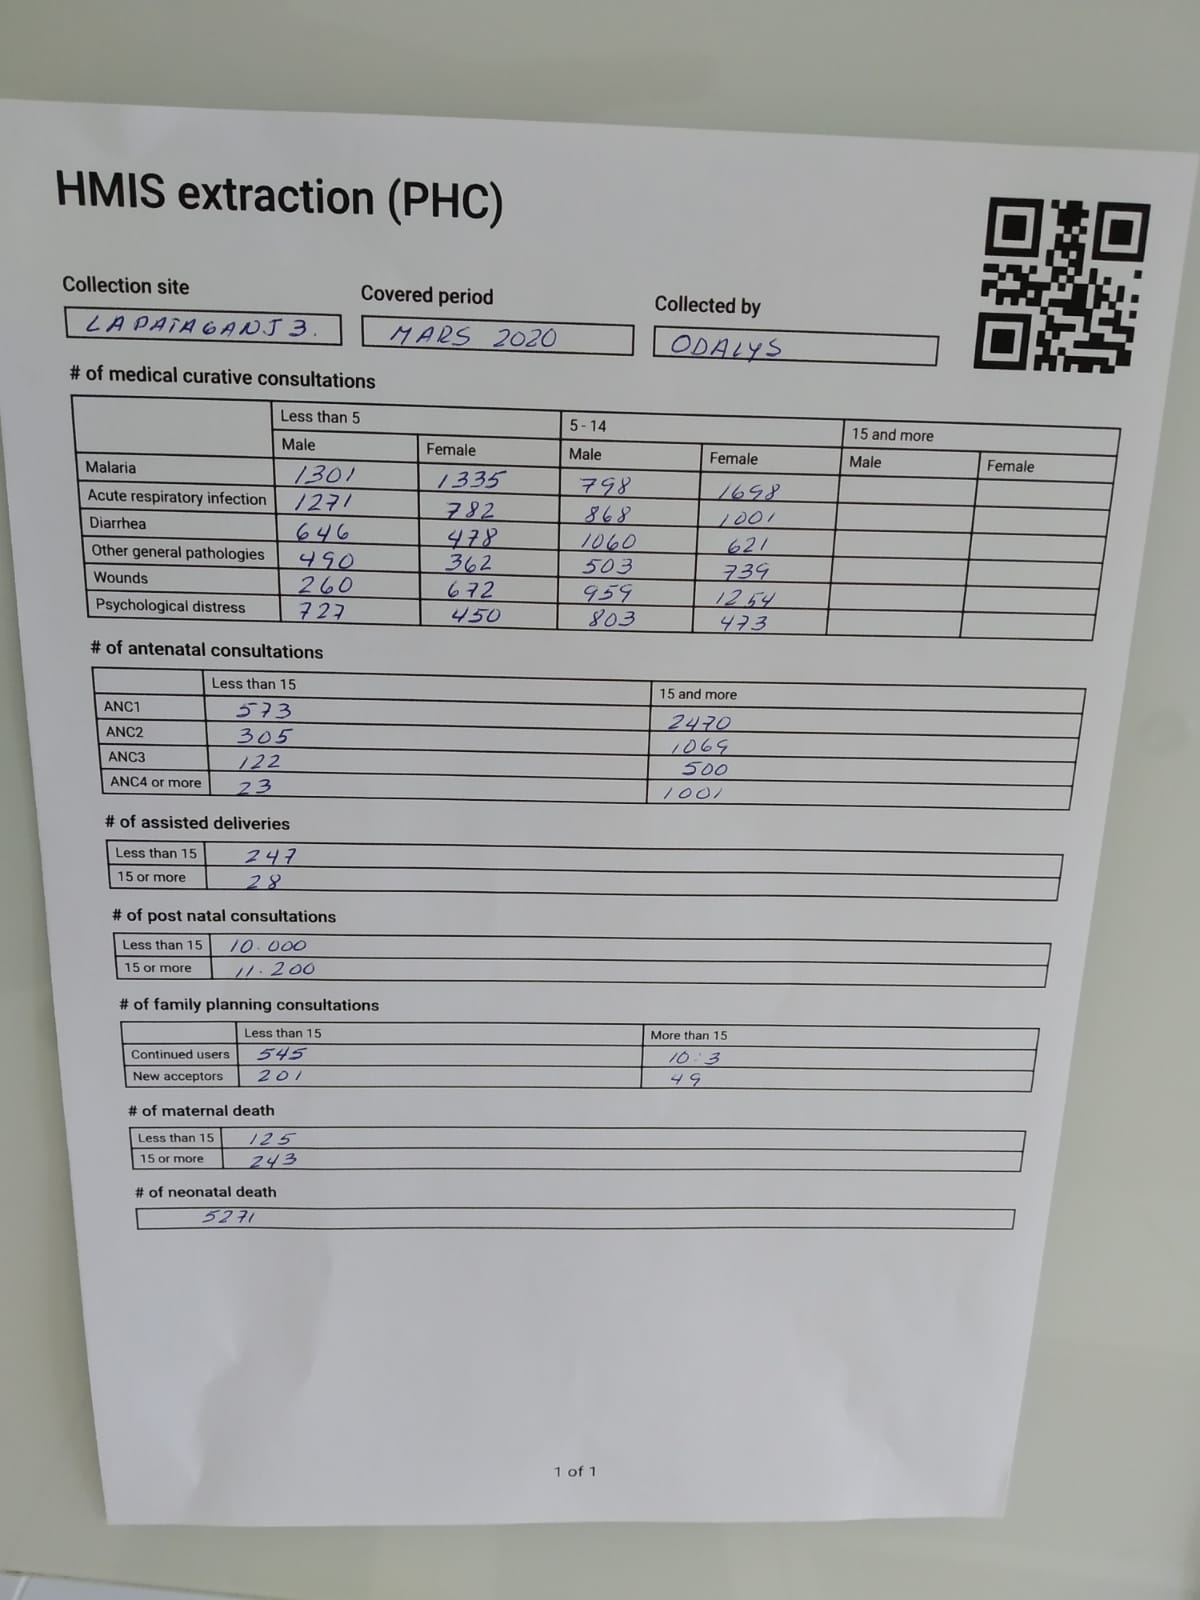 HMIS extraction (PHC)
Collection site Covered period Collected by
LAPATAGANJ 3. MARS 2020 ODALYS
# of medical curative consultations
Less than 5 5 - 14 15 and more
Male Female Male Female Male Female
Malaria 1301 1335 798 1698
Acute respiratory infection 1271 782 868 1001
Diarrhea 646 478 1060 621
Other general pathologies 490 362 503 739
Wounds 260 672 959 1254
Psychological distress 727 450 803 473
# of antenatal consultations
Less than 15 15 and more
ANC1 573 2470
ANC2 305 1069
ANC3 122 500
ANC4 or more 23 1001
# of assisted deliveries
Less than 15 247
15 or more 28
# of post natal consultations
Less than 15 10.000
15 or more 11.200
# of family planning consultations
Less than 15 More than 15
Continued users 545
New acceptors 201 49
# of maternal death
Less than 15 125
15 or more 243
# of neonatal death
5271
1 of 1